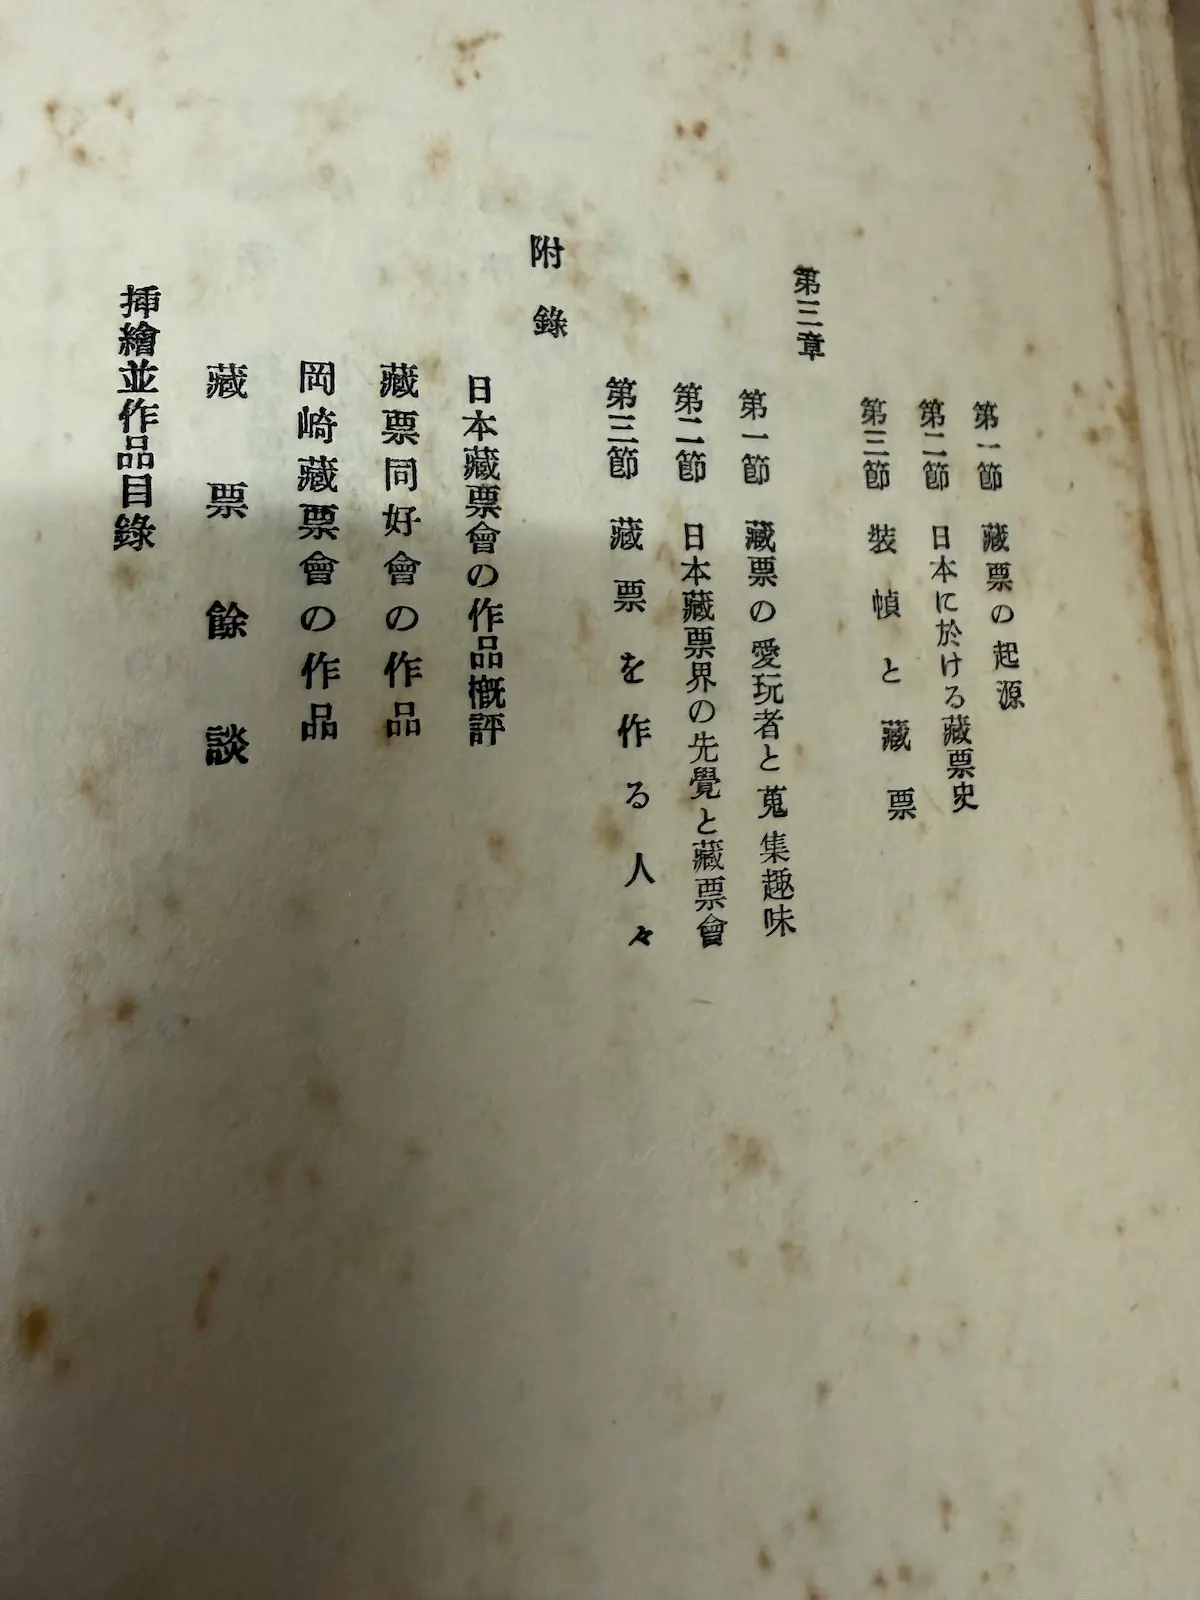 第一節 藏票の起源
第二節 日本に於ける藏票史
第三節 裝幀と藏票
第三章
第一節 藏票の愛玩者と蒐集趣味
第二節 日本藏票界の先覺と藏票會
第三節 藏票を作る人々
附錄
日本藏票會の作品槪評
藏票同好會の作品
岡崎藏票會の作品
藏票餘談
揷繪並作品目錄